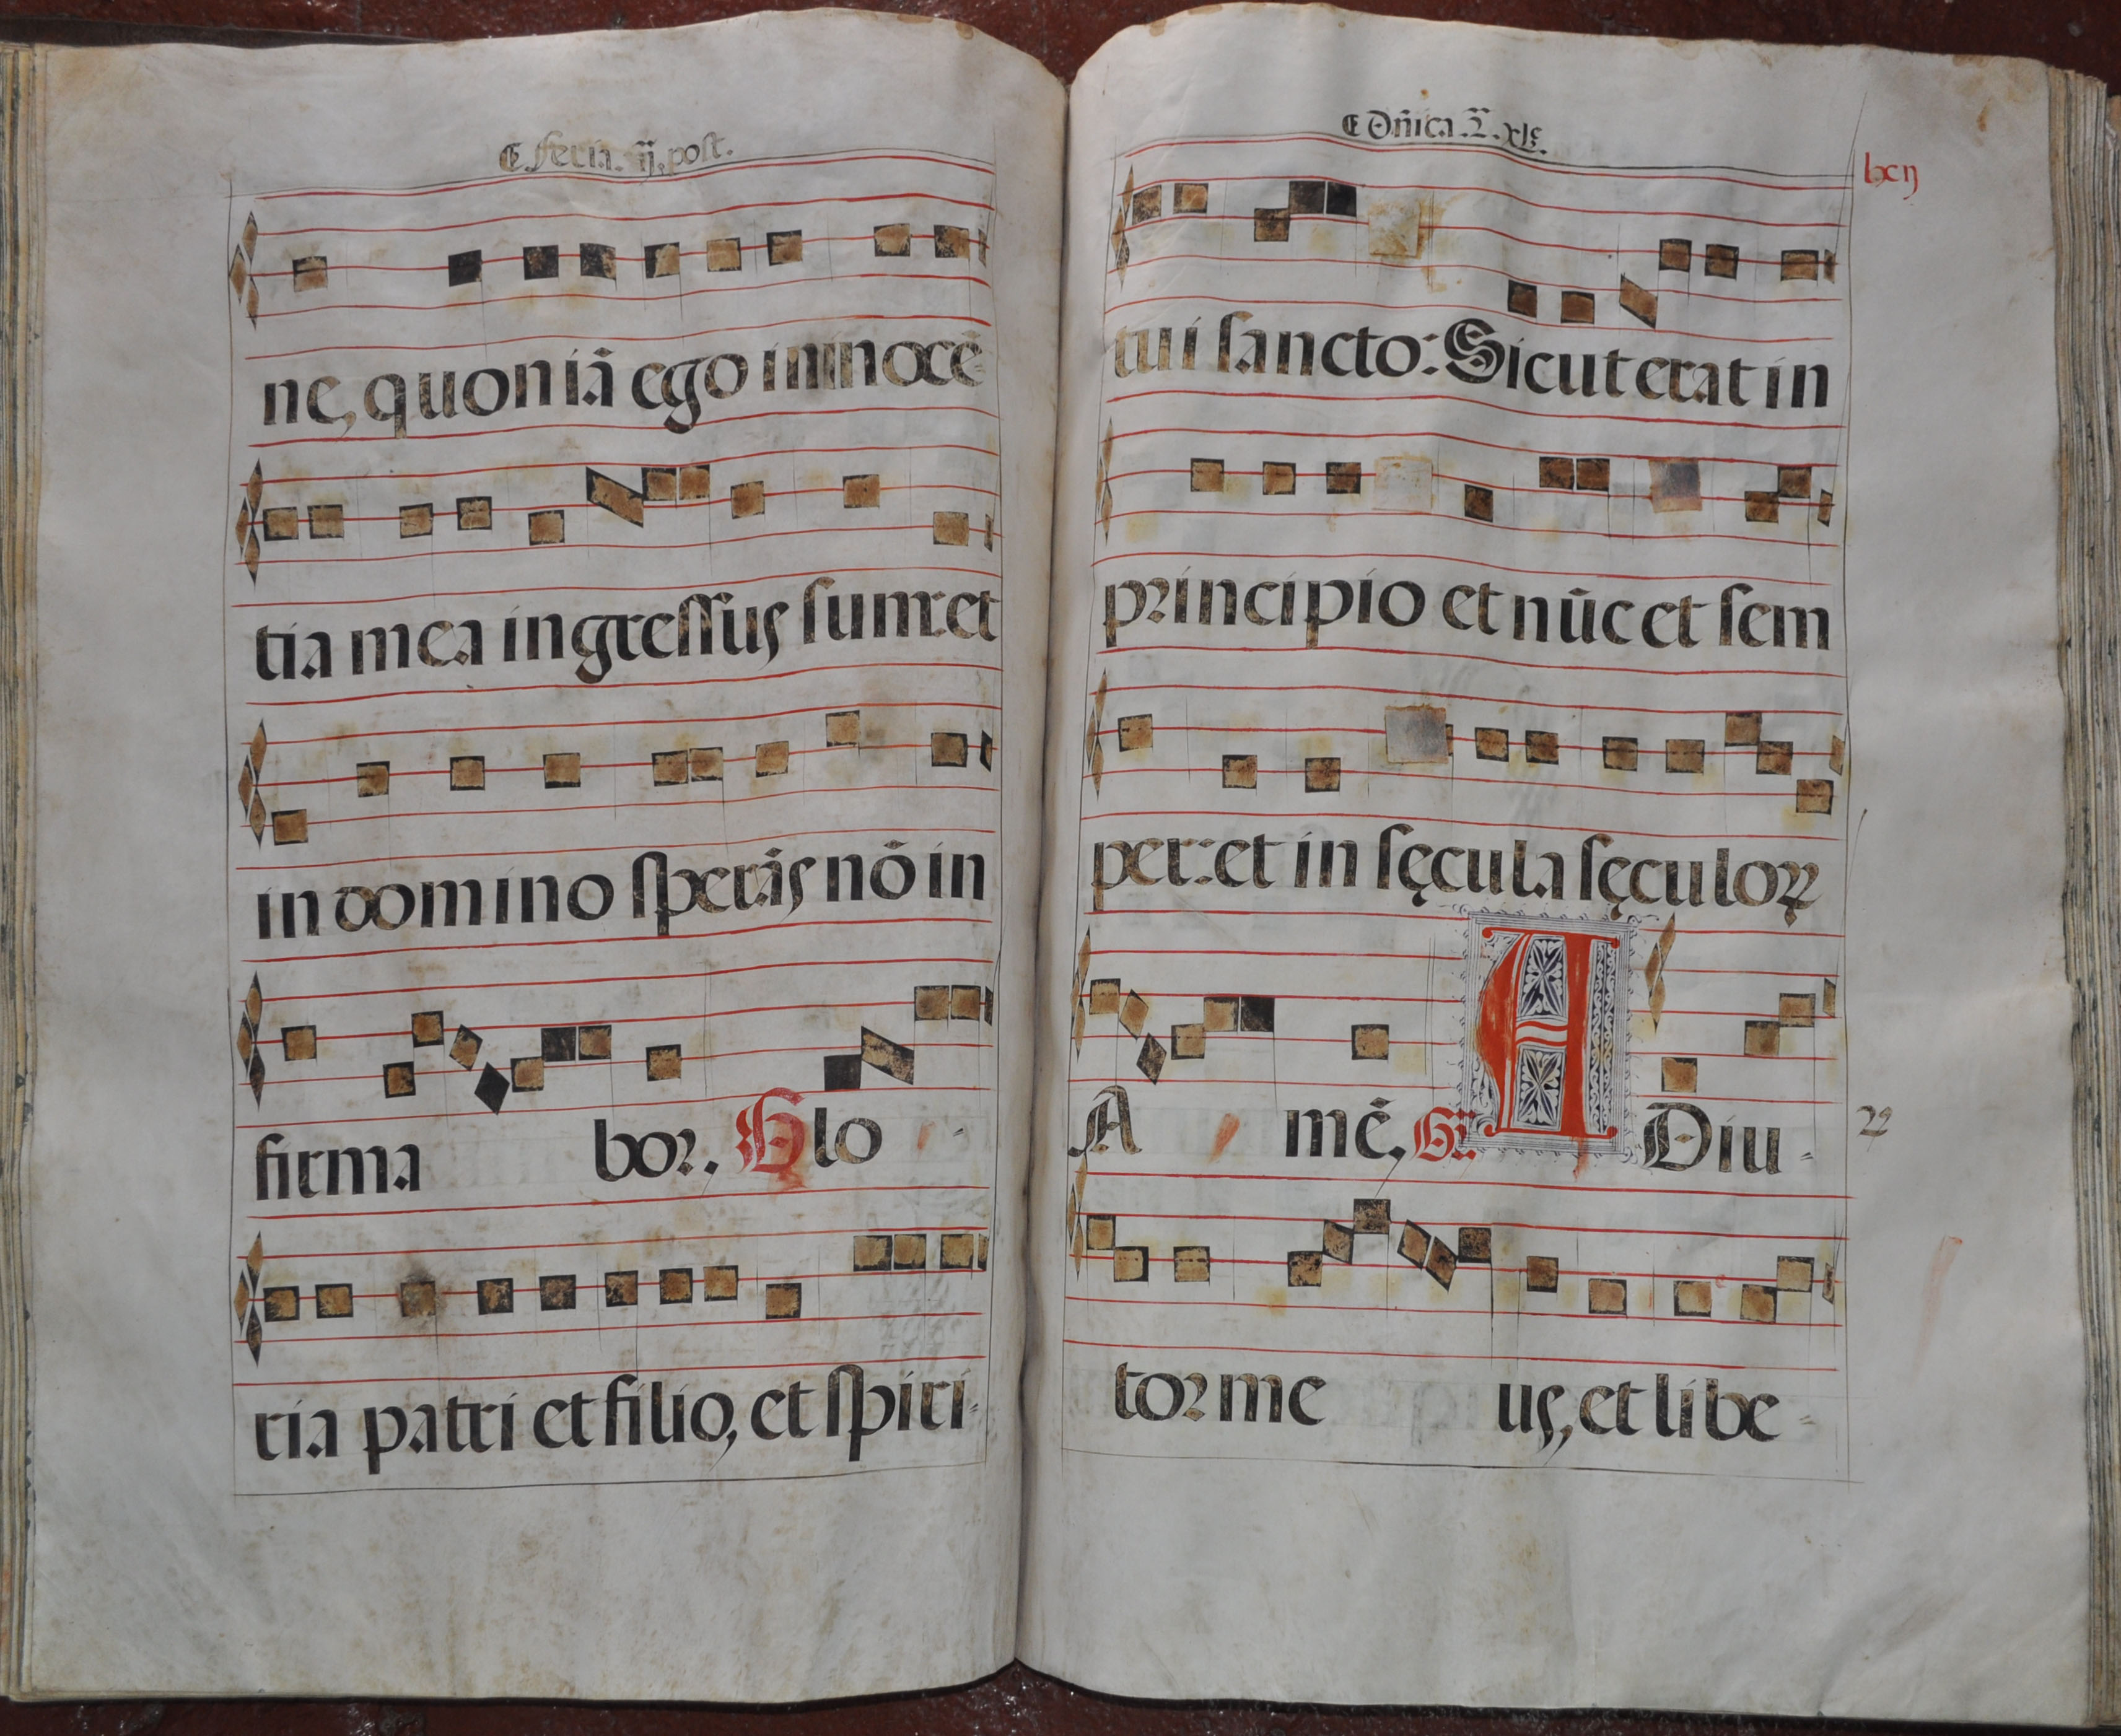 feria. ij. post.
ne, quoniā ego in innocē
tia mea ingressus sum: et
in domino sperās nō in
firma bor. Glo
ria patri et filio, et spiri-
Dñica. 2. xlᵉ.
lxij
tui sancto: Sicut erat in
principio et nūc et sem
per: et in sęcula sęculoꝝ
A mē, Gr̃ A Diu-
22
tor me us, et libe-